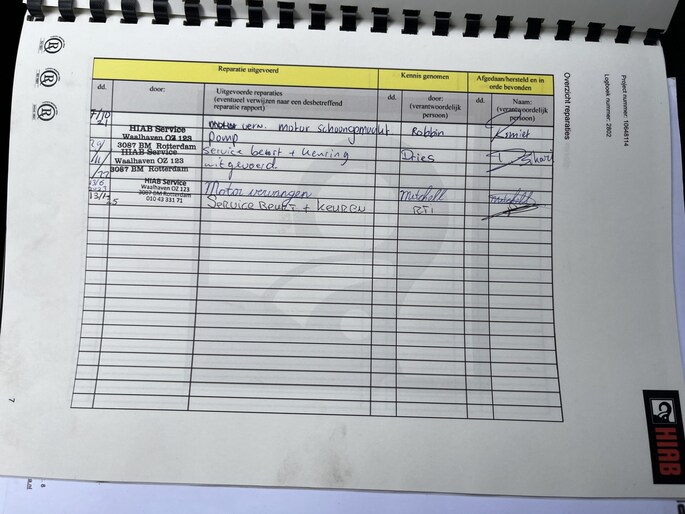 Project nummer: 10648114
Logboek nummer: 2802
Overzicht reparaties
Reparatie uitgevoerd
Kennis genomen
Afgedaan/hersteld en in orde bevonden
dd.
door:
Uitgevoerde reparaties
(eventueel verwijzen naar een desbetreffend
reparatie rapport)
dd.
door:
(verantwoordelijk
persoon)
dd.
Naam:
(verantwoordelijk
persoon)
7/10
21
HIAB Service
Waalhaven OZ 123
3087 BM Rotterdam
verv. motor schoongemaakt
Pomp
Robbin
HIAB Service
Waalhaven OZ 123
3087 BM Rotterdam
Service beurt + keuring
uitgevoerd
Dries
HIAB Service
Waalhaven OZ 123
3087 BM Rotterdam
010 43 331 71
Motor vervangen
Mitchell
Mitchell
SERVICE BEURT + KEUREN
RTI
7
HIAB
8